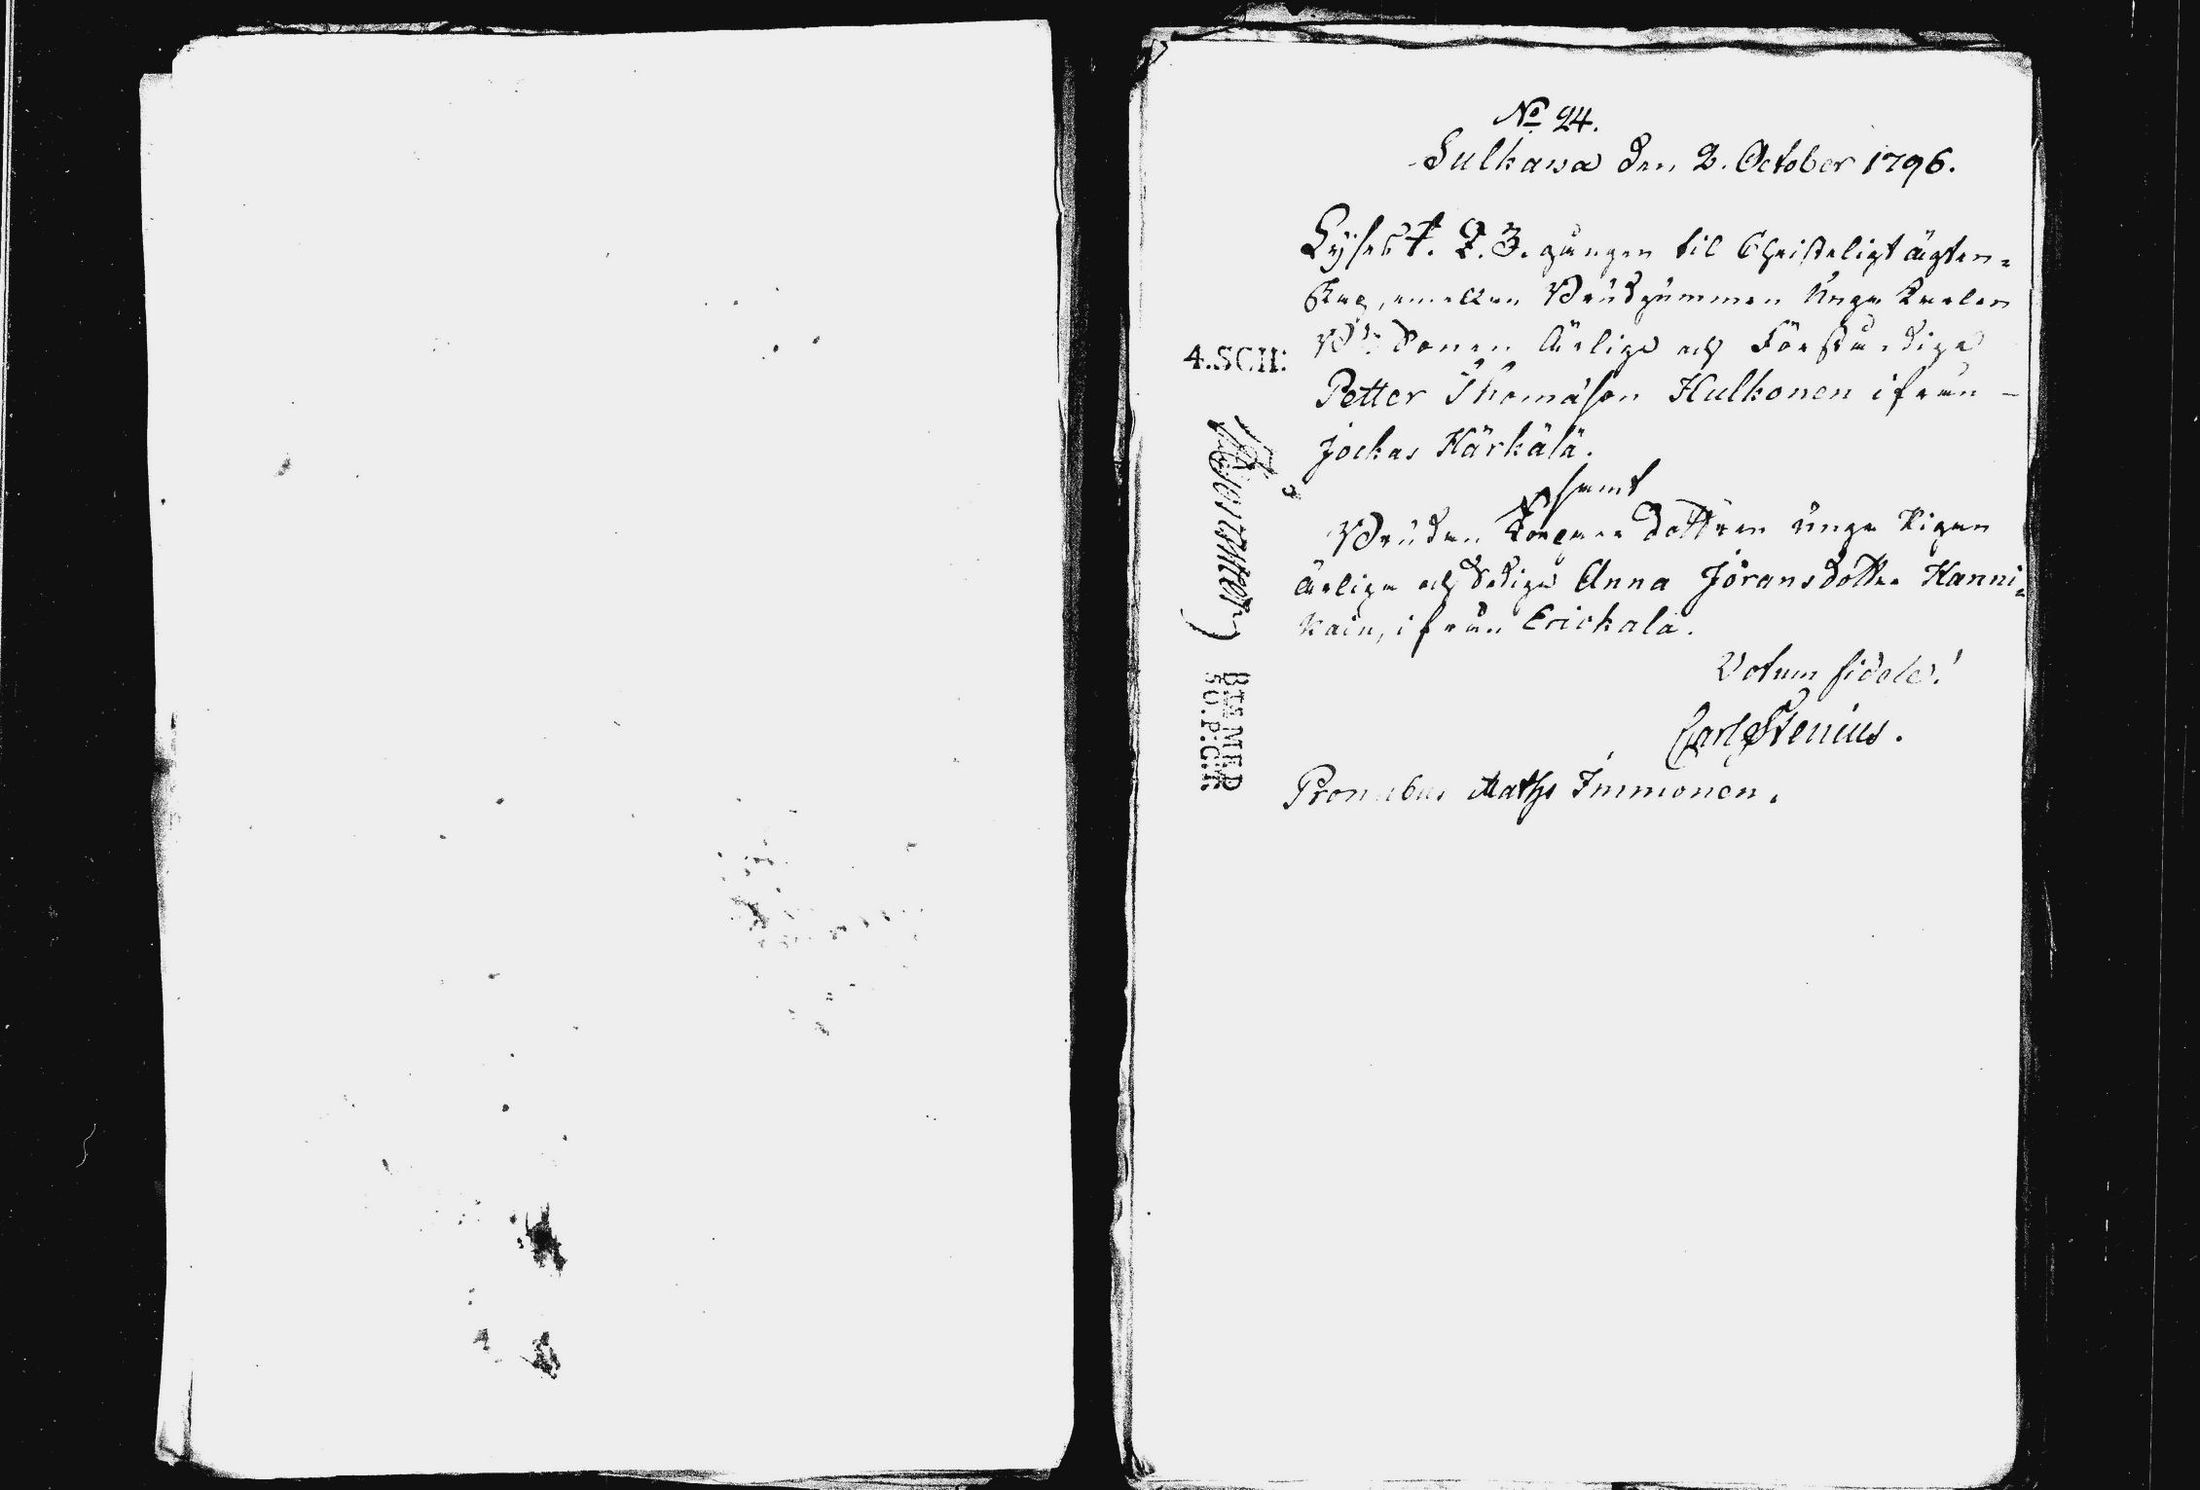 No 24.
Sulkawa den 2. October 1796.
Lyses 1. 2. 3. gången til Christeligt ägten=
skap, emellan Brudgummen Unga Karlen
Bde Sonen Ärlige och Förståndige
Petter Thomasson Hulkonen ifrån
Jockas Härkälä.
samt
Bruden dottren unga Pigan
Ärliga och Dediga Anna Jöransdotter Hanni=
kain, ifrån Erickala.
Votum fidele!
Carl Stenius.
Pronubus Maths Immonen.
4.SCH: